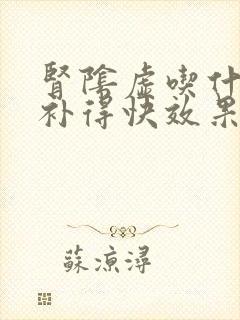 腎陰虛喫什
补得快效果
蘇凉潯